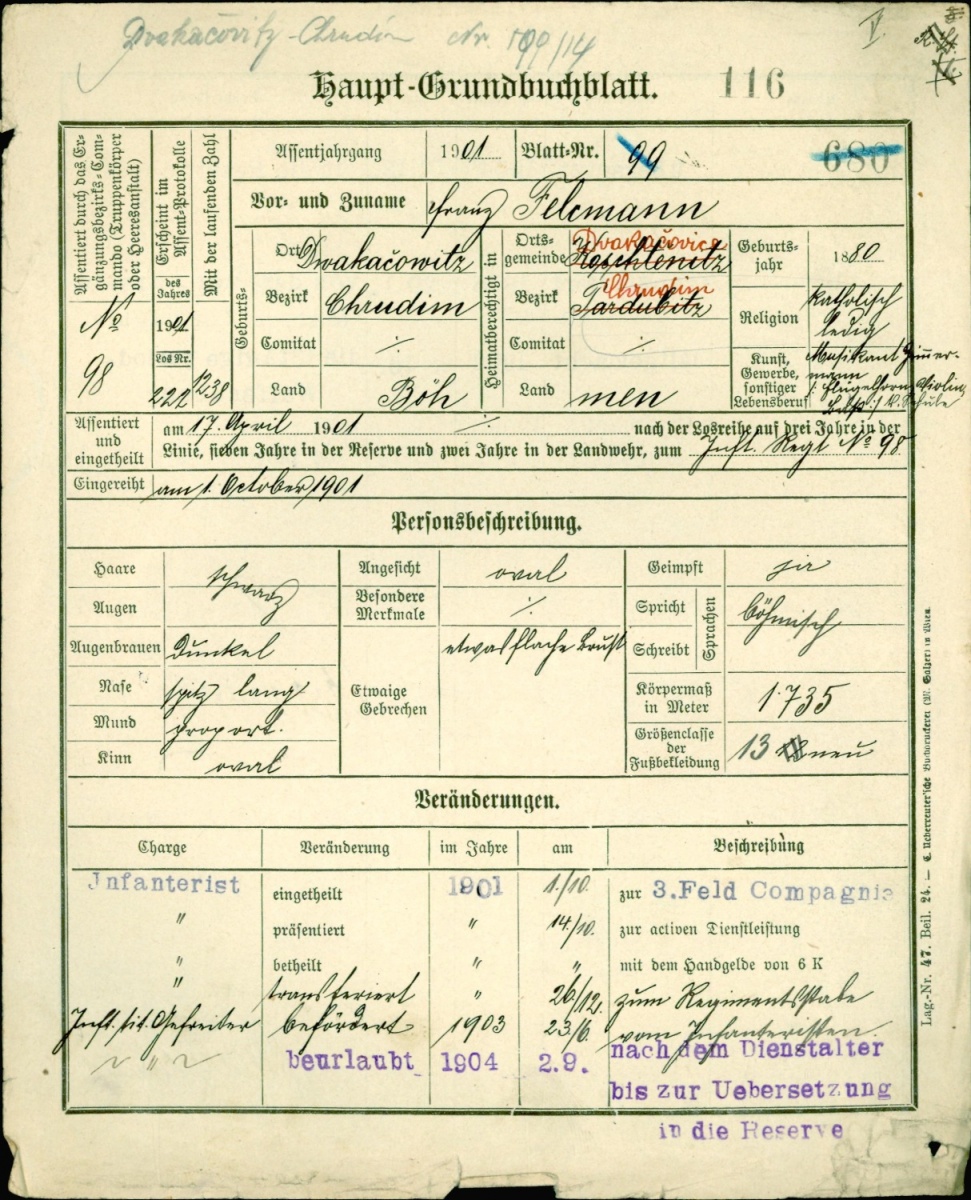 Dvakačovitz-Chrudim Nr. 199/14
V
Haupt-Grundbuchblatt. 116
Assentjahrgang 1901 Blatt-Nr. 99 680
Vor- und Zuname Franz Felcmann
Assentiert durch das Ergänzungsbezirks-Commando (Truppenkörper oder Heeresanstalt)
No 98
Erscheint im Assent-Protokolle
des Jahres
1901
Los Nr.
222
Mit der laufenden Zahl
1238
Geburts-
Ort Dwakačowitz
Bezirk Chrudim
Comitat ·/·
Land Böh
Heimatberechtigt in
Ortsgemeinde Dvakačovice
Bezirk Chrudim Pardubitz
Comitat ·/·
Land men
Geburtsjahr 1880
Religion katholisch
ledig
Kunst, Gewerbe, sonstiger Lebensberuf
Musikant Zimmermann
Flügelhorn Violin
V. Schule
Assentiert und eingetheilt
am 17. April 1901 ·/· nach der Losreihe auf drei Jahre in der
Linie, sieben Jahre in der Reserve und zwei Jahre in der Landwehr, zum Inft. Regt No 98
Eingereiht am 1. October 1901
Personsbeschreibung.
Haare schwarz
Augen
Augenbrauen dunkel
Nase spitz lang
Mund proport.
Kinn oval
Angesicht oval
Besondere Merkmale ·/·
Etwaige Gebrechen etwas flache Brust
Geimpft ja
Spricht Schreibt Sprachen böhmisch
Körpermaß in Meter 1·735
Größenclasse der Fußbekleidung 13 neu
Veränderungen.
Charge Veränderung im Jahre am Beschreibung
Infanterist eingetheilt 1901 1./10. zur 3.Feld Compagnie
" präsentiert " 14./10. zur activen Dienstleistung
" betheilt " " mit dem Handgelde von 6 K
" transferiert " 26/12. zum Regimentsstabe
Inft. tit. Gefreiter befördert 1903 23/6. vom Infanteristen.
" beurlaubt 1904 2.9. nach dem Dienstalter
bis zur Uebersetzung
in die Reserve
Lag.-Nr. 47. Beil. 24. — C. Ueberreuter'sche Buchdruckerei (M. Salzer) in Wien.